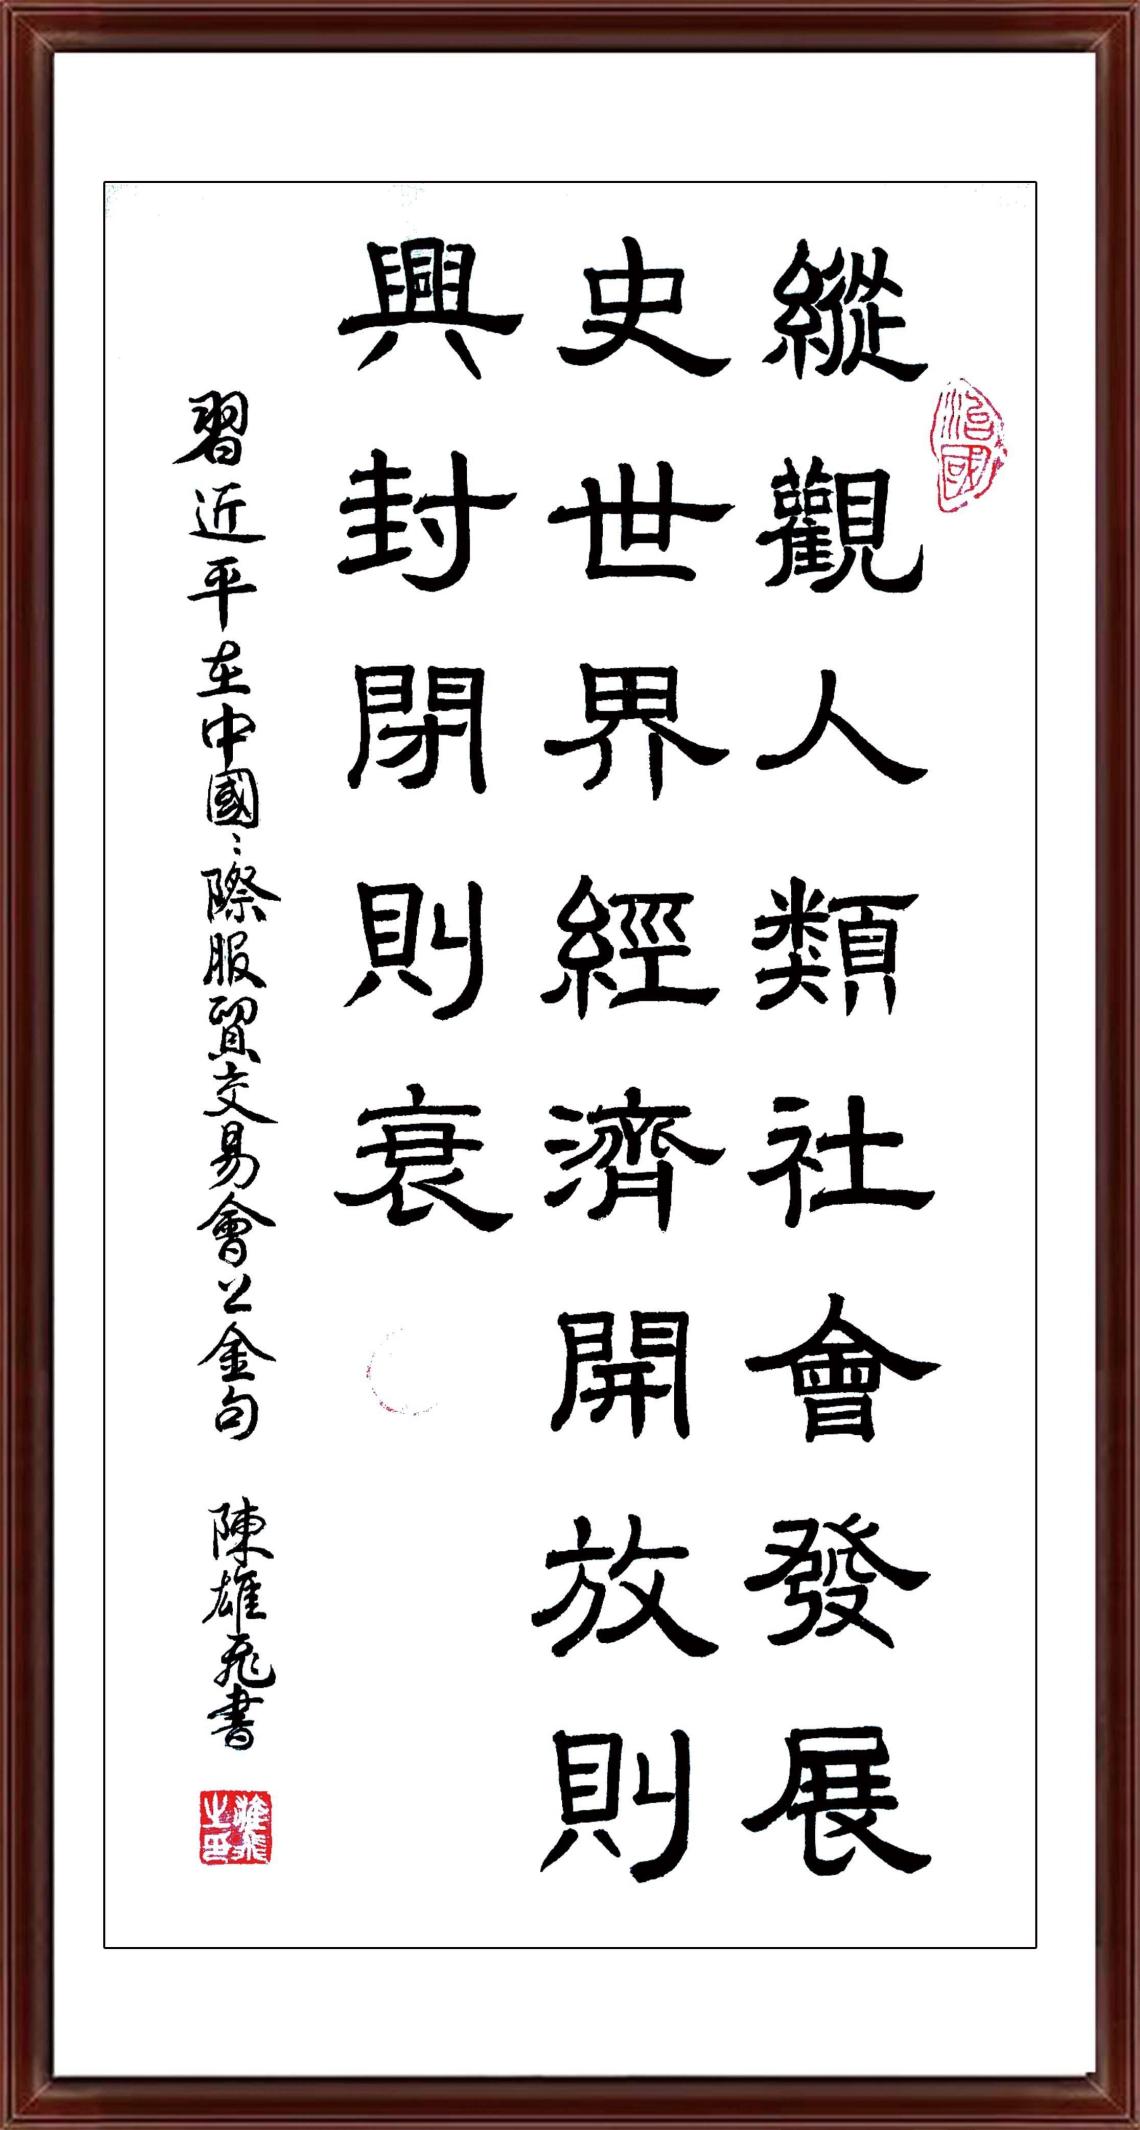 縱觀人類社會發展
史世界經濟開放則
興封閉則衰
習近平在中國〻際服貿交易會上金句 陳雄飛書
治國
雄飛之印